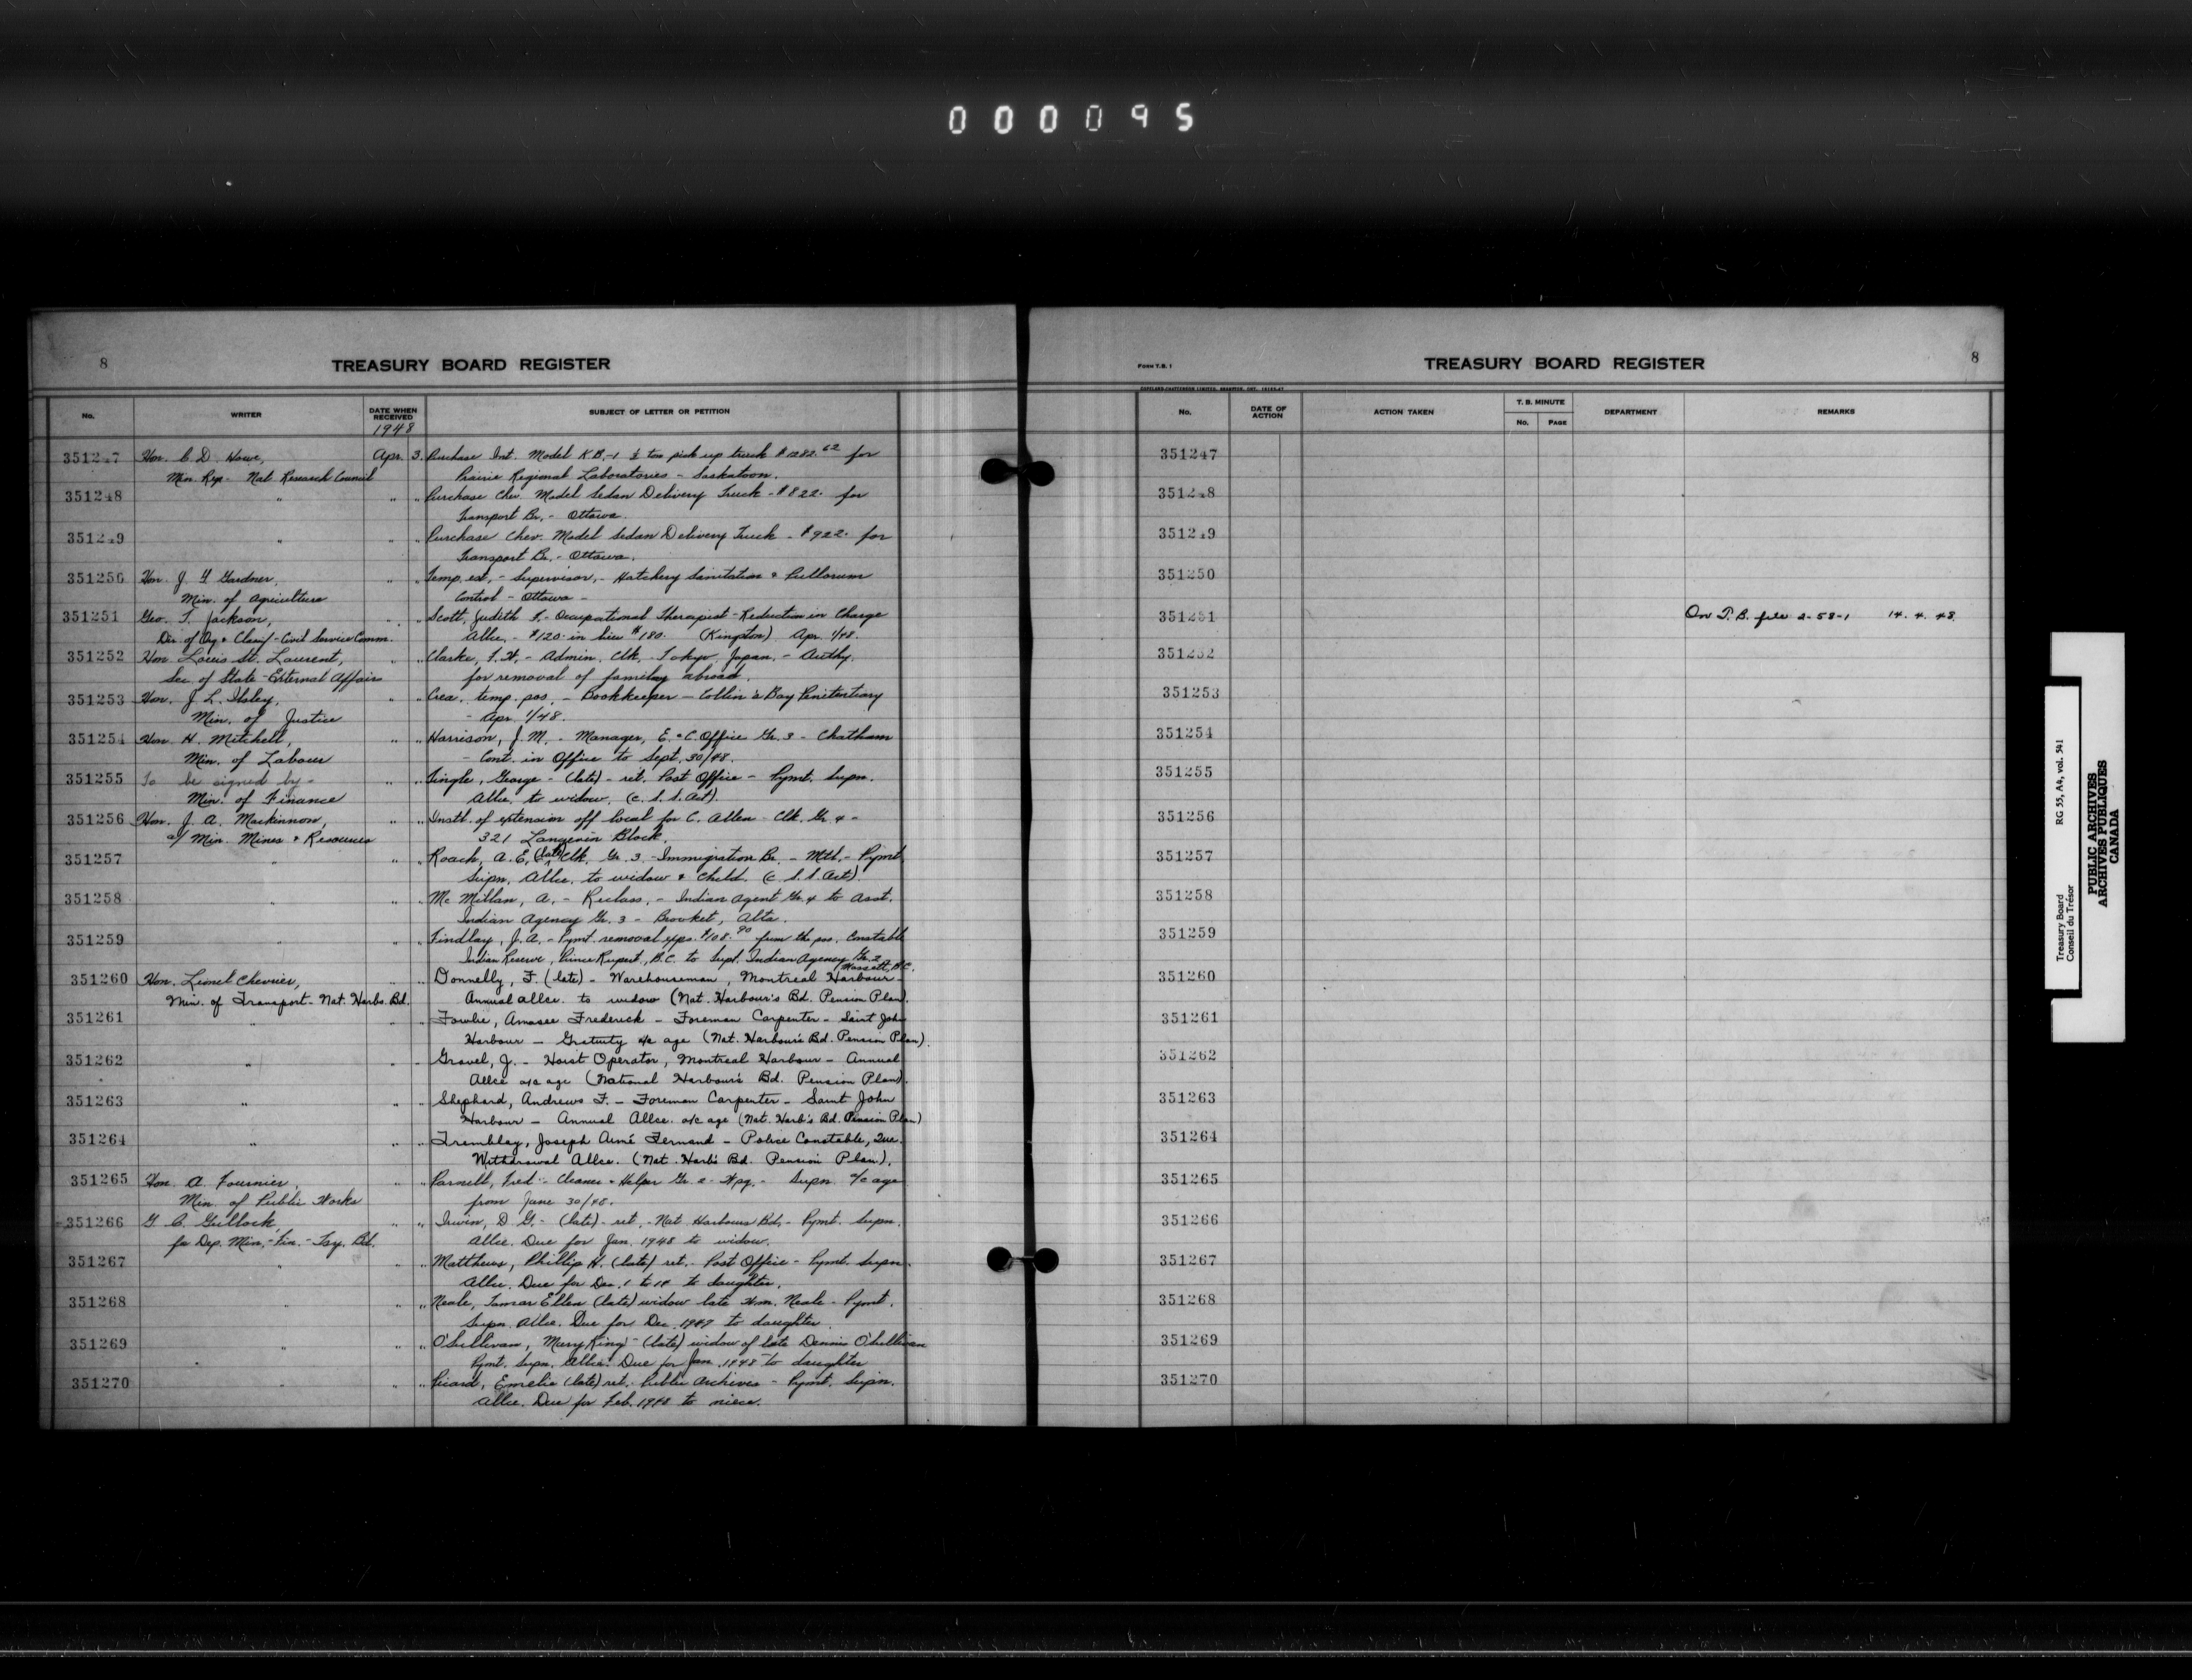 000095
8
TREASURY BOARD REGISTER
No.
WRITER
DATE WHEN RECEIVED
1948
SUBJECT OF LETTER OR PETITION
351247 Hon. C. D. Howe, Apr. 3. Purchase Int. Model K.B.-1 ½ ton pick up truck $1282.62 for
Min. Rep. - Nat. Research Council Prairie Regional Laboratories - Saskatoon.
351248 " " " Purchase Chev. Model Sedan Delivery Truck - $822. for
Transport Br. - Ottawa.
351249 " " " Purchase Chev. Model Sedan Delivery Truck - $922. for
Transport Br. - Ottawa.
351250 Hon. J. G. Gardner, " " Temp. est. - Supervisor, - Hatchery Sanitation & Pullorum
Min. of Agriculture Control - Ottawa -
351251 Geo. T. Jackson, " " Scott, Judith F. - Occupational Therapist - Reduction in Charge
Dir. of Og. & Classif - Civil Service Comm. Allce. - $120. in lieu $180. (Kingston) Apr. 1/48.
351252 Hon. Louis St. Laurent, " " Clarke, F. H. - Admin. Clk. - Tokyo, Japan, - Authy.
Sec. of State - External Affairs for removal of family abroad.
351253 Hon. J. L. Ilsley, " " Crea. temp. pos. - Bookkeeper - Collin's Bay Penitentiary
Min. of Justice - Apr. 1/48.
351254 Hon. H. Mitchell, " " Harrison, J. M. - Manager, E. & C. Office Gr. 3 - Chatham
Min. of Labour - Cont. in Office to Sept. 30/48.
351255 To be signed by - " " Tingle, George - (late) - ret. Post Office - Pymt. Supn.
Min. of Finance Allce. to widow. (C. S. S. Act).
351256 Hon. J. A. Mackinnon, " " Instl. of extension off local for C. Allen - Clk. Gr. 4 -
a/ Min. Mines & Resources 321 Langevin Block.
351257 " " " Roach, A. E. (late) Clk. Gr. 3 - Immigration Br. - Mtl. - Pymt.
Supn. Allce. to widow & child. (C. S. S. Act).
351258 " " " Mc Millan, A. - Reclass. - Indian Agent Gr. 4 to Asst.
Indian Agency Gr. 3 - Brocket, Alta.
351259 " " " Findlay, J. A. - Pymt. removal exps. $108.90 from the pos. Constable
Indian Reserve, Prince Rupert, B.C. to Supt. Indian Agency Gr. 2
(Massett, B.C.
351260 Hon. Lionel Chevrier, " " Donnelly, F. (late) - Warehouseman, Montreal Harbour
Min. of Transport - Nat. Harbs. Bd. Annual allce. to widow (Nat. Harbour's Bd. Pension Plan).
351261 " " " Fowlie, Amasee Frederick - Foreman Carpenter - Saint John
Harbour - Gratuity a/c age (Nat. Harbour's Bd. Pension Plan).
351262 " " " Gravel, J. - Hoist Operator, Montreal Harbour - Annual
Allce a/c age (National Harbour's Bd. Pension Plan).
351263 " " " Shephard, Andrews F. - Foreman Carpenter - Saint John
Harbour - Annual Allce. a/c age (Nat. Harb's Bd. Pension Plan)
351264 " " " Tremblay, Joseph Aimé Fernand - Police Constable, Que.
Withdrawal Allce. (Nat. Harb's Bd. Pension Plan).
351265 Hon. A. Fournier, " " Parnell, Fred - Cleaner & Helper Gr. 2 - Wpg. - Supn. a/c age
Min. of Public Works from June 30/48.
351266 G. C. Gullock, " " Irwin, D. G. - (late) - ret. - Nat. Harbours Bd. - Pymt. Supn.
for Dep. Min. - Fin. - Tsy. Bd. Allce. Due for Jan. 1948 to widow.
351267 " " " Matthews, Phillip H. (late) ret. - Post Office - Pymt. Supn.
Allce. Due for Dec. 1 to 14 to daughter.
351268 " " " Neale, Tamsar Ellen (late) widow late Wm. Neale - Pymt.
Supn. Allce. Due for Dec. 1947 to daughter.
351269 " " " O'Sullivan, Mary King - (late) widow of late Dennis O'Sullivan
Pymt. Supn. Allce. Due for Jan. 1948 to daughter
351270 " " " Picard, Emelie (late) ret. Public Archives - Pymt. Supn.
Allce. Due for Feb. 1948 to niece.
FORM T.B. 1
TREASURY BOARD REGISTER
8
No.
DATE OF ACTION
ACTION TAKEN
T. B. MINUTE
No.
PAGE
DEPARTMENT
REMARKS
351247
351248
351249
351250
351251 On T.B. file 2-58-1 14.4.48
351252
351253
351254
351255
351256
351257
351258
351259
351260
351261
351262
351263
351264
351265
351266
351267
351268
351269
351270
Treasury Board
Conseil du Trésor
RG 55, A4, vol. 541
PUBLIC ARCHIVES
ARCHIVES PUBLIQUES
CANADA